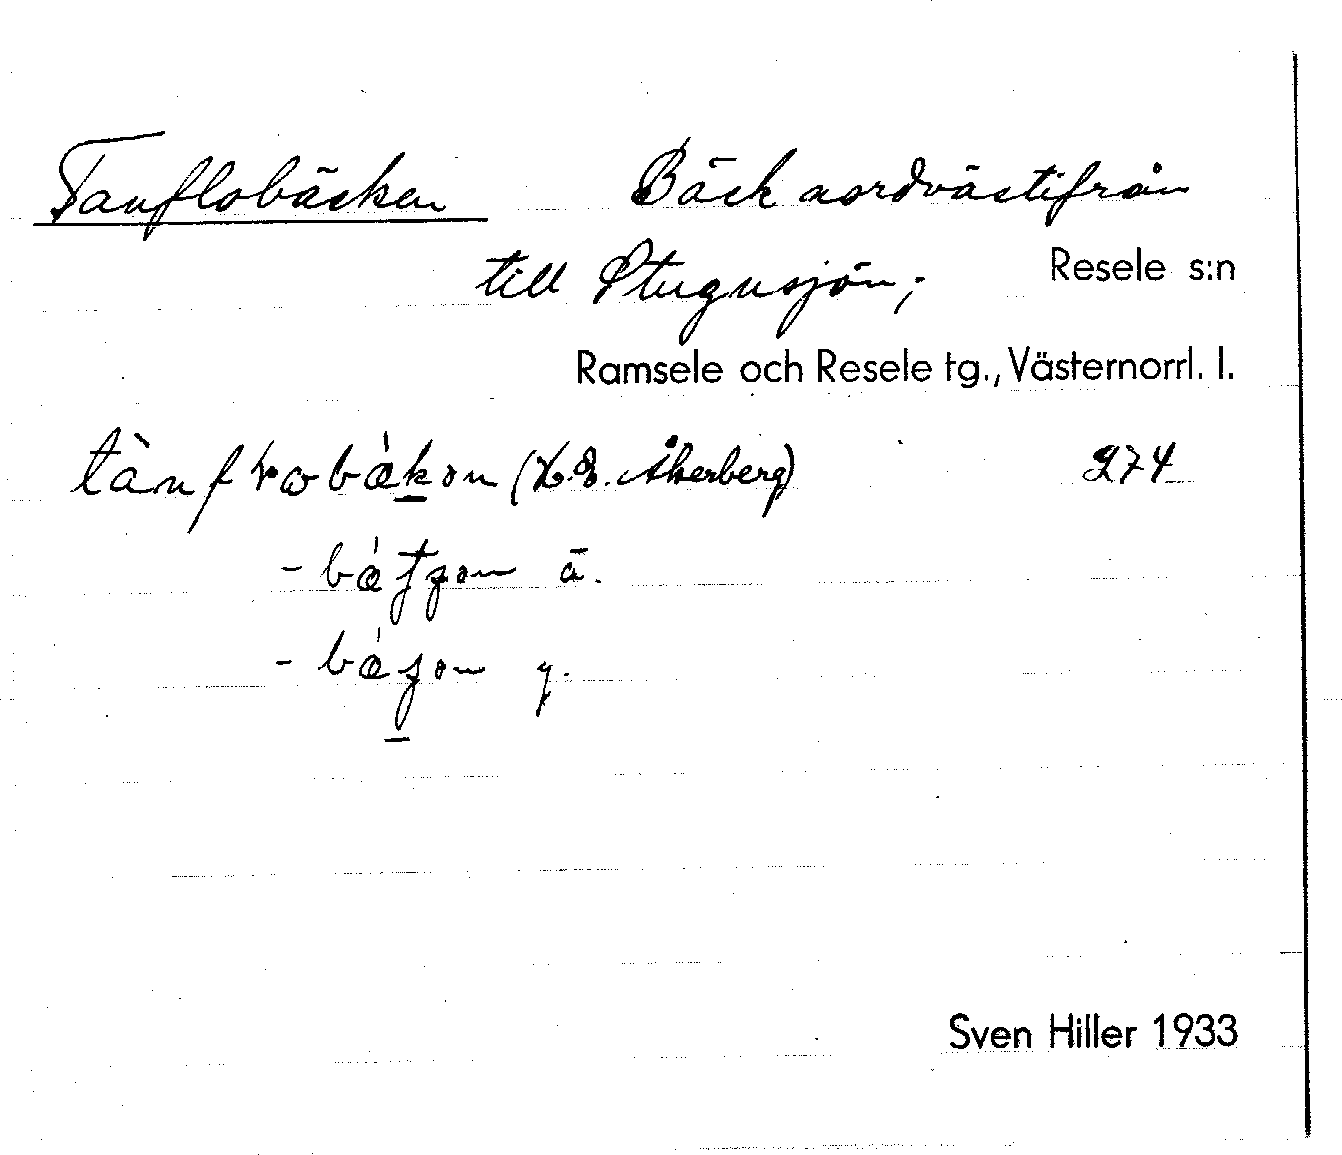 Tanflobäcken Bäck nordvästifrån
till Stugusjön; Resele s:n
Ramsele och Resele tg., Västernorrl. l.
(K.E. Åkerberg) 274
ä.
y.
Sven Hiller 1933